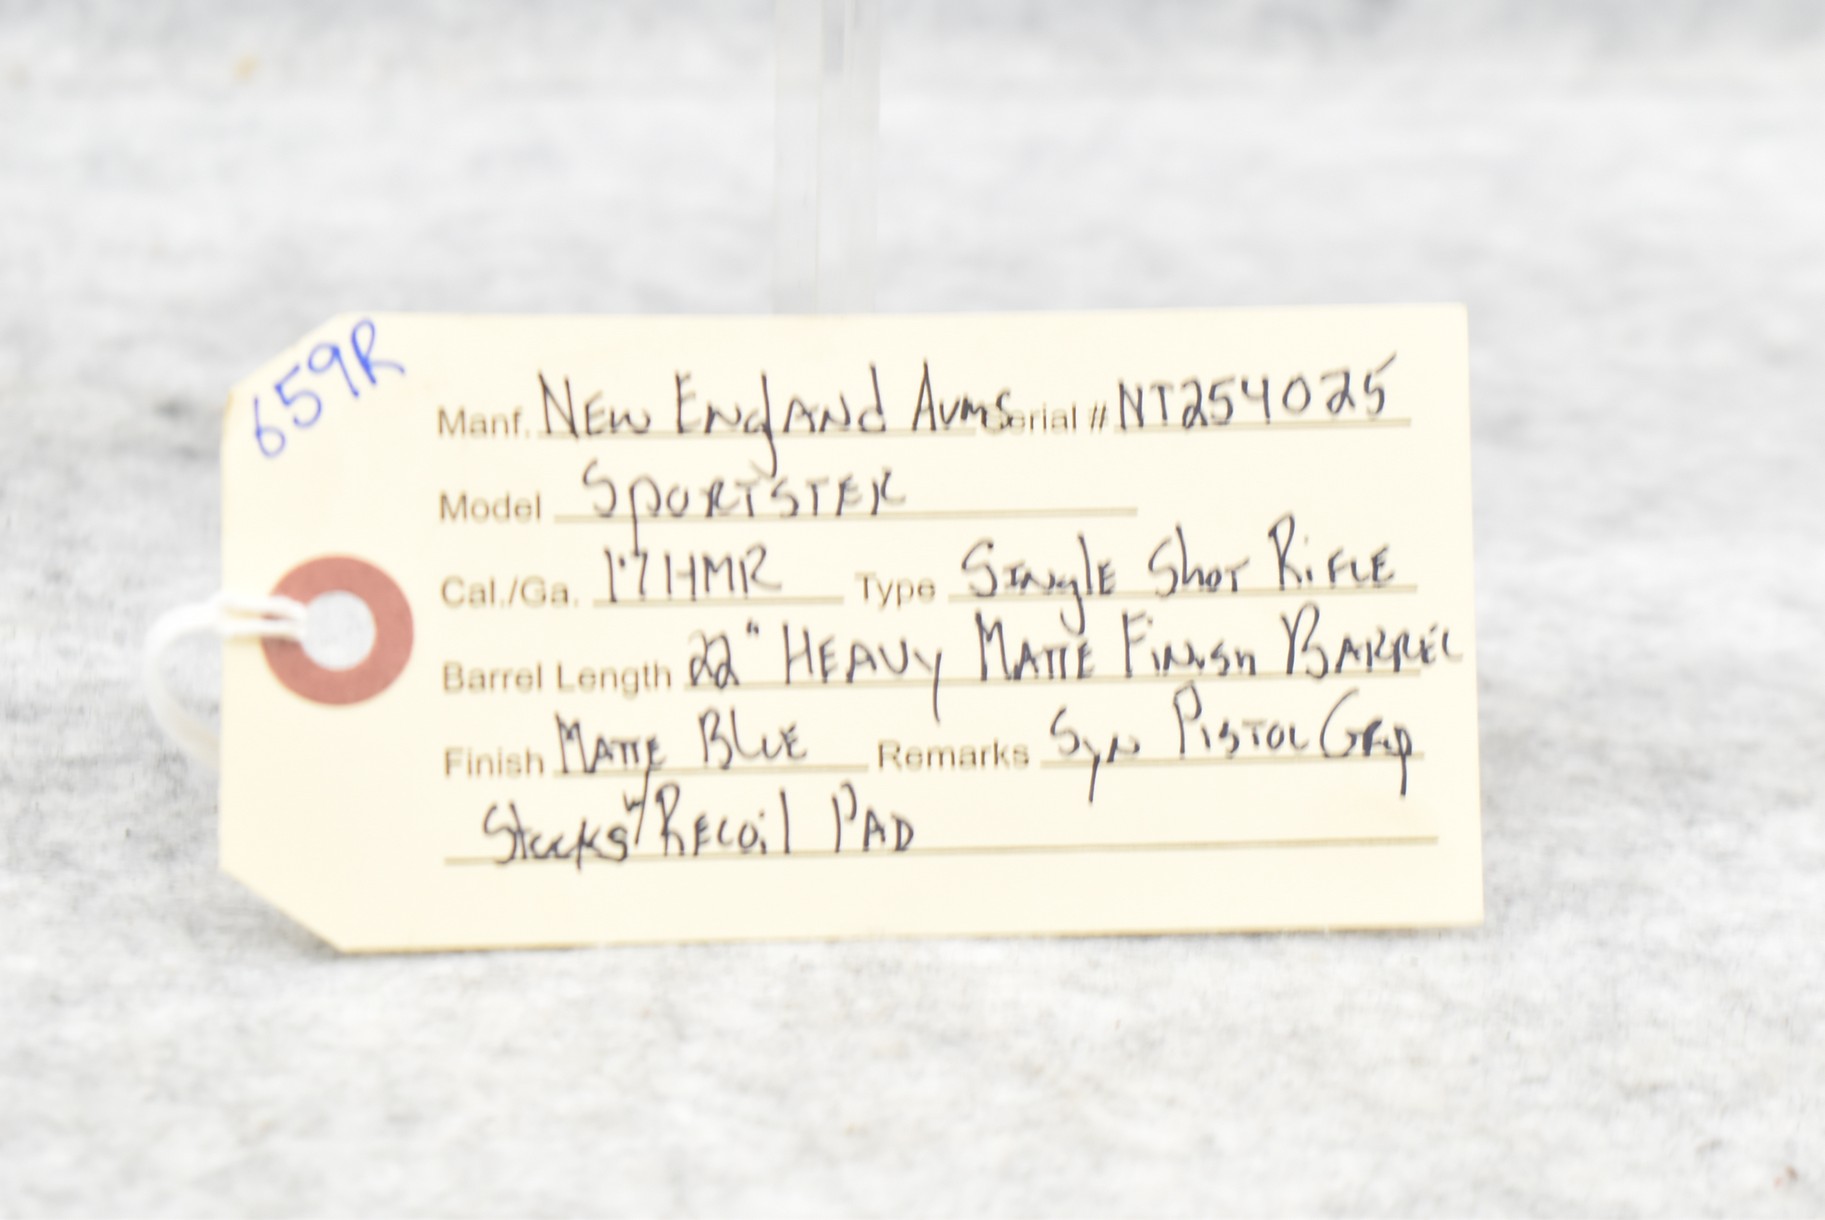 659R
Manf. New England Arms Serial # NT254025
Model Sportster
Cal./Ga. 17HMR Type Single Shot Rifle
Barrel Length 22" Heavy Matte Finish Barrel
Finish Matte Blue Remarks Syn Pistol Grip
Stocks w/ Recoil Pad